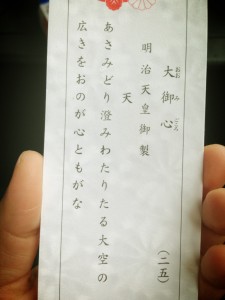 大御心
おおみごころ
(二五)
明治天皇御製
天
あさみどり澄みわたりたる大空の
広きをおのが心ともがな